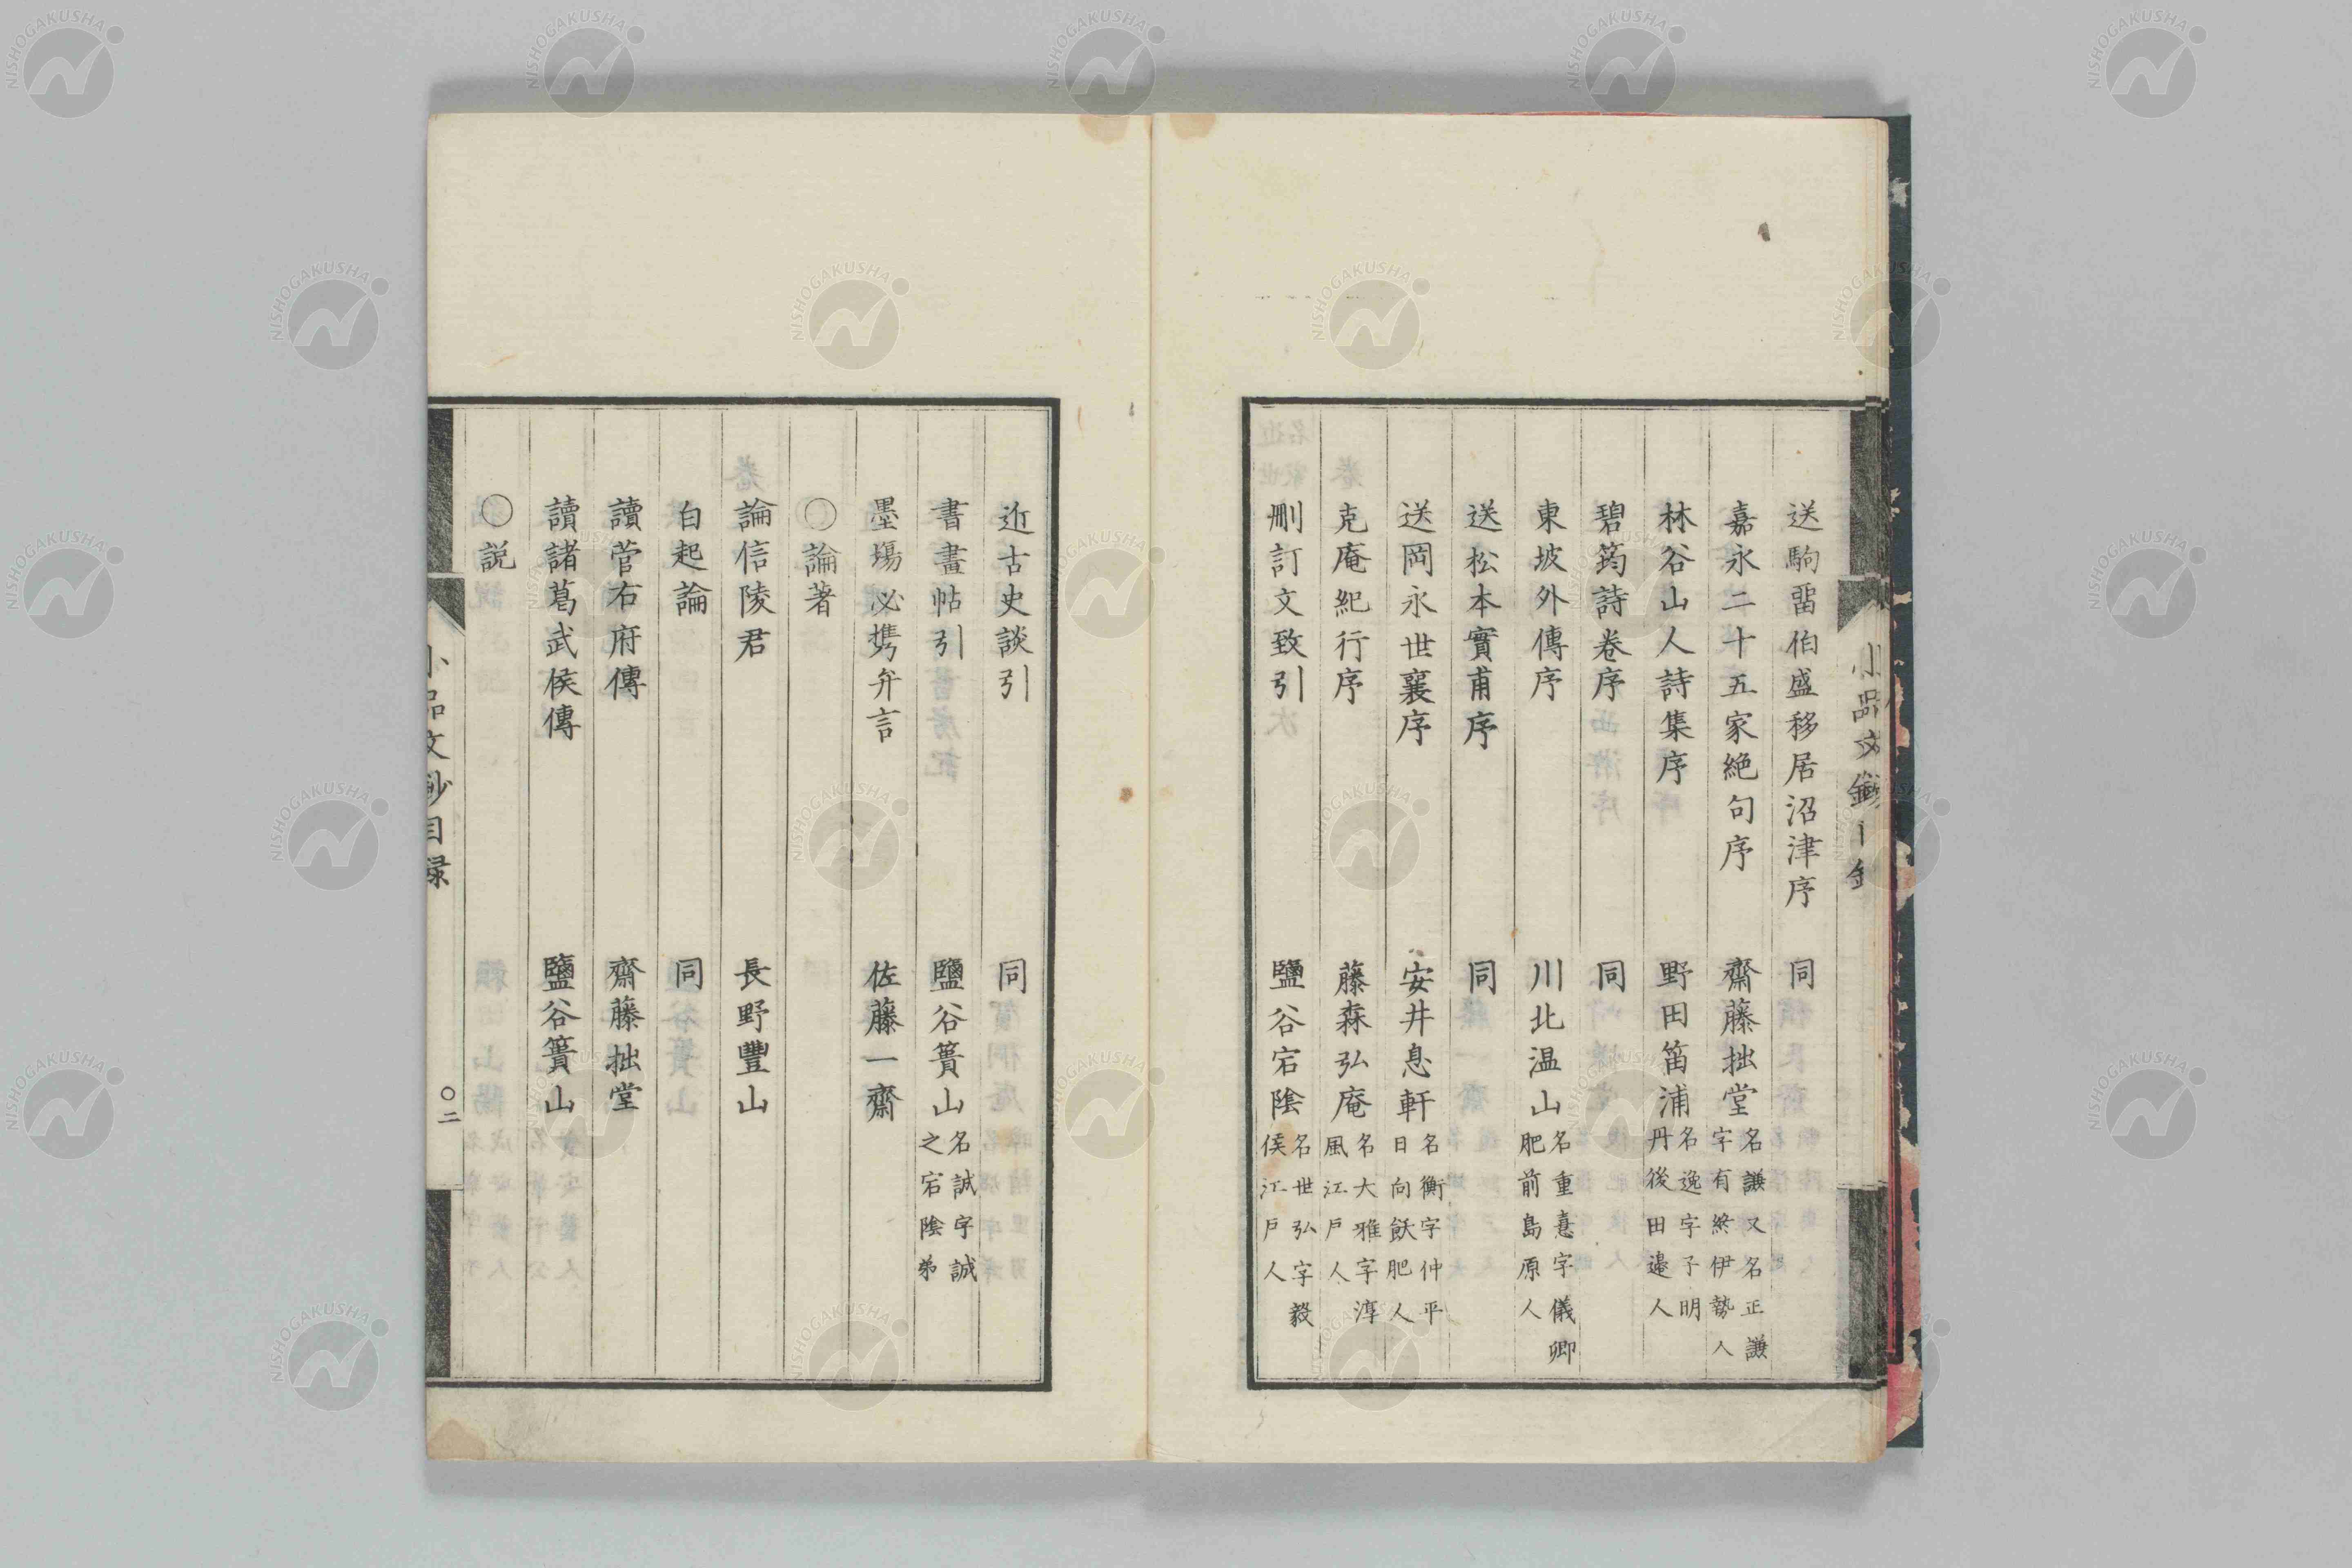 送駒留伯盛移居沼津序 同
嘉永二十五家絶句序 齋藤拙堂 名謙又名正謙
字有終伊勢人
林谷山人詩集序 野田笛浦 名逸字子明
丹後田邉人
碧筠詩卷序 同
東坡外傳序 川北温山 名重憙字儀卿
肥前島原人
送松本實甫序 同
送岡永世襄序 安井息軒 名衡字仲平
日向飫肥人
克庵紀行序 藤森弘庵 名大雅字淳
風江戸人
刪訂文致引 鹽谷宕陰 名世弘字毅
侯江戸人
近古史談引 同
書畫帖引 鹽谷簣山 名誠字誠
之宕陰弟
墨場必携弁言 佐藤一齋
○論著
論信陵君 長野豐山
白起論 同
讀菅右府傳 齋藤拙堂
讀諸葛武侯傳 鹽谷簣山
○説
小品文鈔目録 ○二
NISHOGAKUSHA